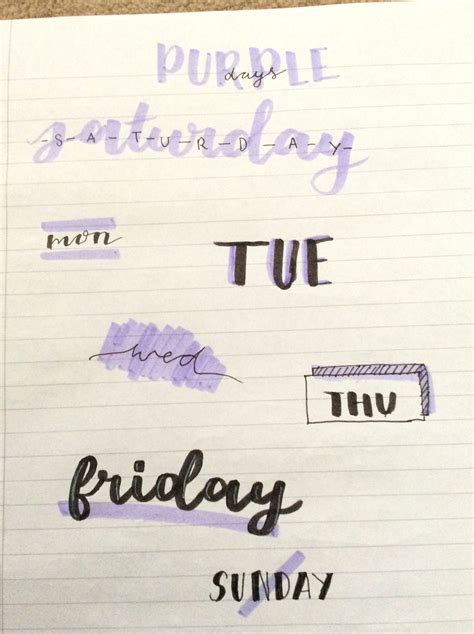 PURPLE
days
saturday
-S-A-T-U-R-D-A-Y-
mon
TUE
wed
THU
friday
SUNDAY